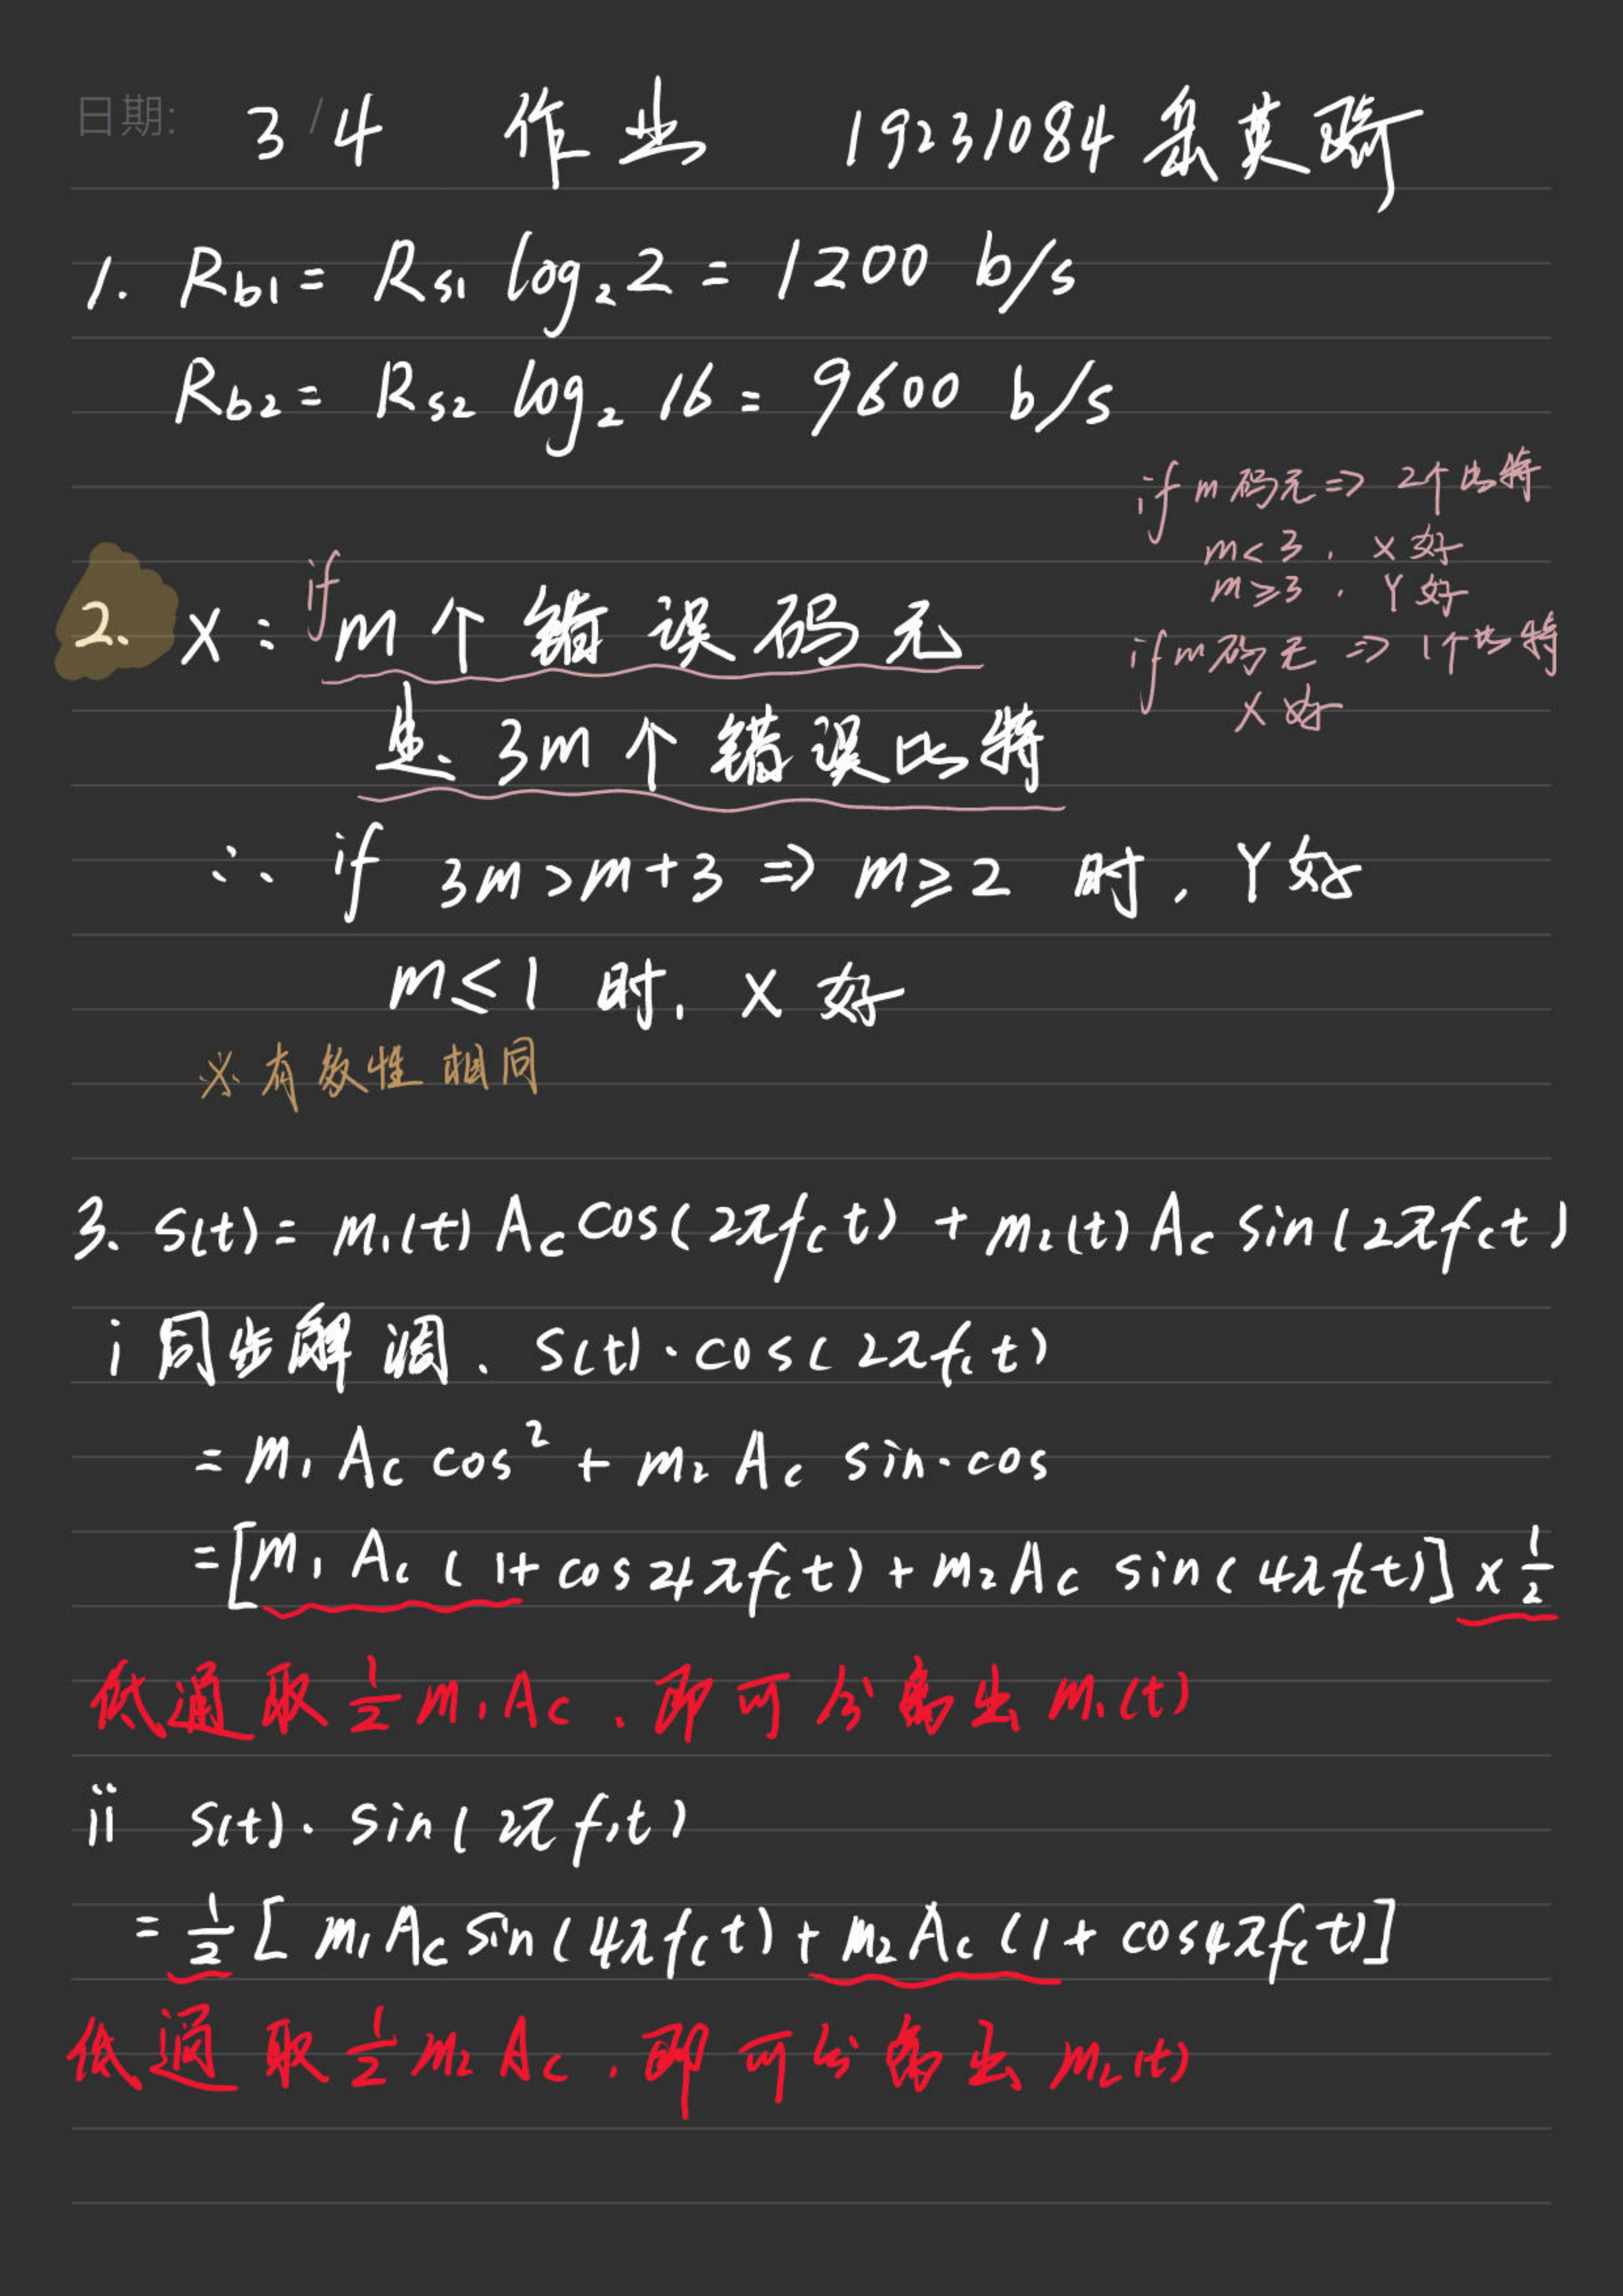 日期: 3/4 作业 19231084 英骑
1. Rb1 = Rs1 log₂2 = 1200 b/s
Rb2 = Rs2 log₂16 = 9600 b/s
if m码元 => 2个比特
m<3, X好
m≥3, Y好
if m码元 => 1个比特
X好
2. X: if m个错误码元
是 3m个错误比特
∴ if 3m>m+3 => m≥2 时, Y好
m≤1 时, X好
※有效性相同
3. s(t) = m₁(t)Ac cos(2πfct) + m₂(t)Ac sin(2πfct)
i 同步解调、s(t)·cos(2πfct)
= m₁Ac cos² + m₂Ac sin·cos
= [m₁Ac(1+cos4πfct) + m₂Ac sin(4πfct)] × 1/2
低通取 1/2 m₁Ac、即可分离出 m₁(t)
ii s(t)·sin(2πfct)
= 1/2 [m₁Ac sin(4πfct) + m₂Ac(1+cos4πfct)]
低通取 1/2 m₂Ac、即可分离出 m₂(t)